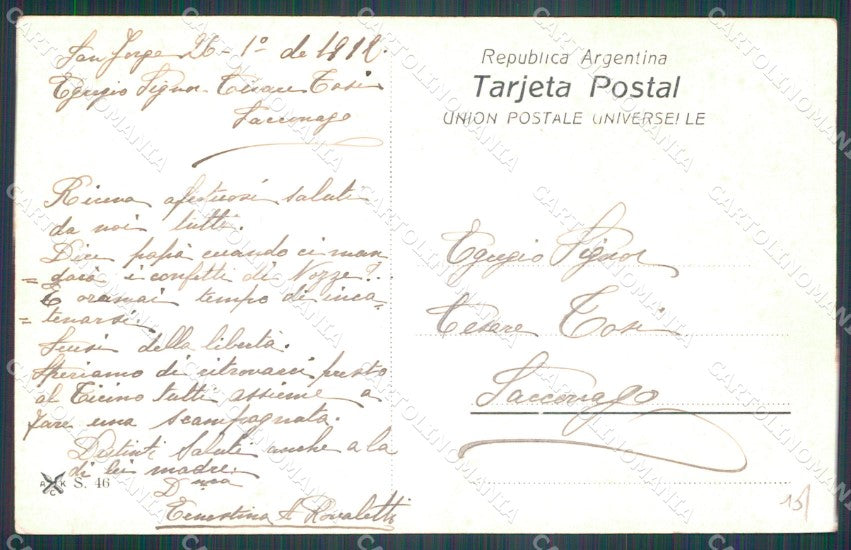 San Jorge 26-1º de 1912.
Egregio Signor Cesare Tosi
Sacconago
Riceva afettuosi saluti
da noi tutti.
Dice papà quando ci man
= darà i confetti di Nozze?..
E oramai tempo di inca-
= tenarsi.
della libertà.
Speriamo di ritrovarci presto
al Ticino tutti assieme a
fare una scampagnata.
Distinti Saluti anche a la
di lei madre.
Ernestina A Rovaletti
A K
G
S. 46
Republica Argentina
Tarjeta Postal
UNION POSTALE UNIVERSELLE
Egregio Signor
Cesare Tosi
Sacconago
15/
CARTOLINOMANIA